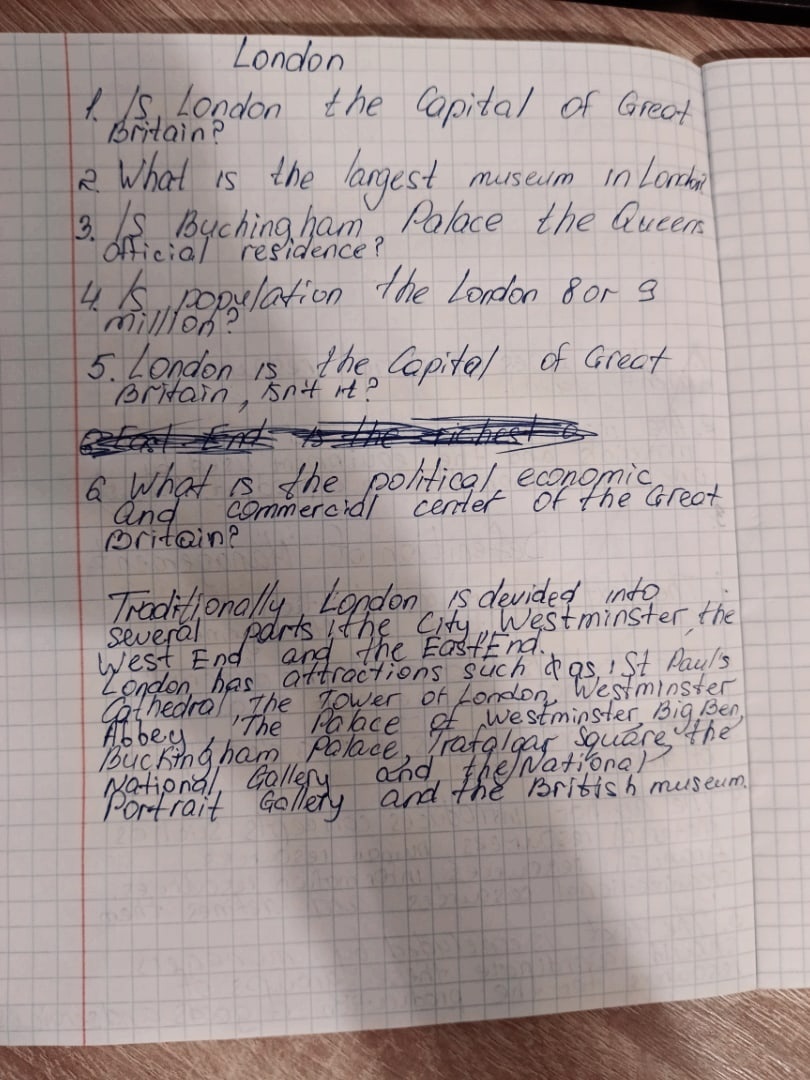 London
1. Is London the Capital of Great
Britain?
2. What is the largest museum in London
3. Is Buchingham Palace the Queens
official residence?
4. Is population the London 8 or 9
million?
5. London is the Capital of Great
Britain, isn't it?
East End is the richest
6. What is the political economic
and commercial center of the Great
Britain?
Traditionally London is devided into
several parts: the City, Westminster, the
West End and the East End.
London has attractions such as: St Paul's
Cathedral The Tower of London, Westminster
Abbey, The Palace of Westminster, Big Ben,
Buckingham Palace, Trafalgar Square, the
National Gallery and the National
Portrait Gallery and the British museum.